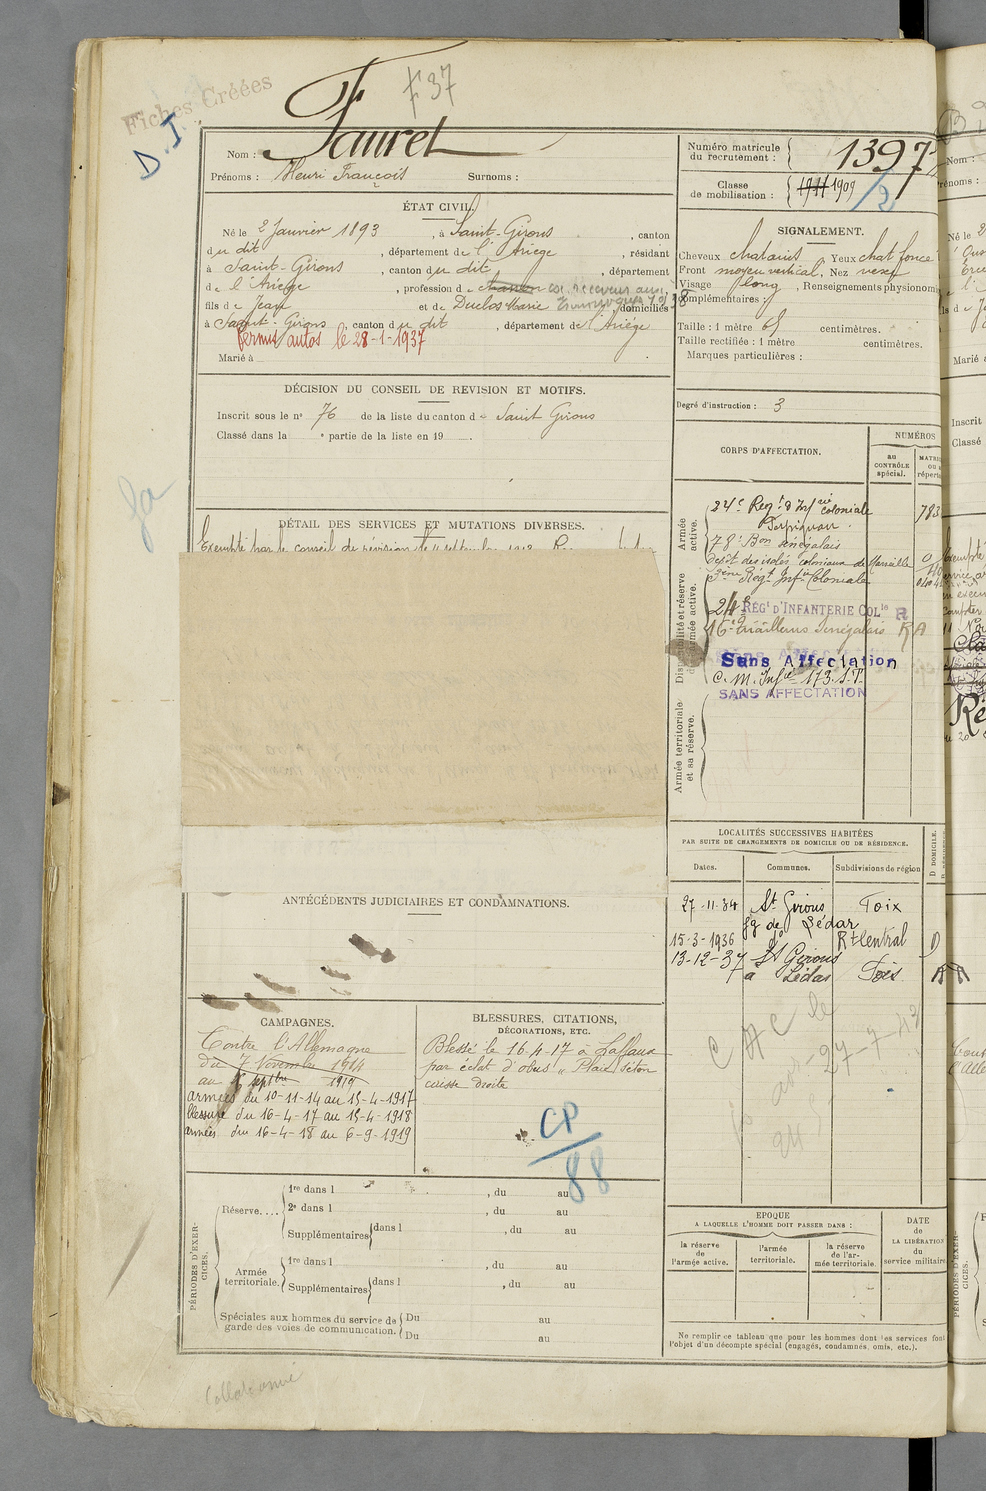 Fiches Créées
D.I
F 37
Nom : Fauret
Prénoms : Henri François Surnoms :
Numéro matricule du recrutement : 1397
Classe de mobilisation : 1911 1909
/2
ÉTAT CIVIL.
Né le 2 Janvier 1893, à Saint-Girons, canton
du dit, département de l'Ariège, résidant
à Saint-Girons, canton du dit, département
de l'Ariège, profession de ex. receveur aux
fils de Jean et de Duclos Marie domiciliés
à Saint-Girons canton du dit, département de l'Ariège
Permis autos le 28-1-1937
Marié à
SIGNALEMENT.
Cheveux chatains, Yeux chat foncé
Front moyen vertical, Nez
Visage long, Renseignements physionom
complémentaires :
Taille : 1 mètre 65 centimètres.
Taille rectifiée : 1 mètre centimètres.
Marques particulières :
Degré d'instruction : 3
DÉCISION DU CONSEIL DE REVISION ET MOTIFS.
Inscrit sous le no 76 de la liste du canton de Saint Girons
Classé dans la e partie de la liste en 19
DÉTAIL DES SERVICES ET MUTATIONS DIVERSES.
Exempté par le conseil de révision
CORPS D'AFFECTATION.
NUMÉROS
au CONTRÔLE spécial.
Armée active.
24e Regt d'Infrie coloniale 783
Perpignan
78e Bon Sénégalais
depôt des isolés coloniaux de Marseille
3ème Régt Infie Coloniale
Disponibilité et réserve de l'armée active.
24e RÉGt D'INFANTERIE COLle R
16e tirailleurs Sénégalais RA
Sans Affectation
C.M. Infie 173. S.T.
SANS AFFECTATION
Armée territoriale et sa réserve.
LOCALITÉS SUCCESSIVES HABITÉES
PAR SUITE DE CHANGEMENTS DE DOMICILE OU DE RÉSIDENCE.
Dates. Communes. Subdivisions de région
27-11-34 St Girons Foix
fg de Lédar
15-3-1936 do Rt Central D
13-12-37 St Girons
à Lédar Foix R
ANTÉCÉDENTS JUDICIAIRES ET CONDAMNATIONS.
CAMPAGNES.
Contre l'Allemagne
du 7 Novembre 1914
au septbre 1919
armées du 10-11-14 au 15-4-1917
blessure du 16-4-17 au 15-4-1918
armées du 16-4-18 au 6-9-1919
BLESSURES, CITATIONS,
DÉCORATIONS, ETC.
Blessé le 16-4-17 à Laffaux
par éclat d'obus "Plaie séton
cuisse droite
CP
88
27-7-
PÉRIODES D'EXERCICES.
Réserve....
1re dans l , du au
2e dans l , du au
Supplémentaires dans l , du au
Armée territoriale.
1re dans l , du au
Supplémentaires dans l , du au
Spéciales aux hommes du service de garde des voies de communication.
Du au
Du au
EPOQUE
A LAQUELLE L'HOMME DOIT PASSER DANS :
la réserve de l'armée active.
l'armée territoriale.
la réserve de l'armée territoriale.
DATE de LA LIBÉRATION du service militaire
Ne remplir ce tableau que pour les hommes dont les services font
l'objet d'un décompte spécial (engagés, condamnés, omis, etc.).